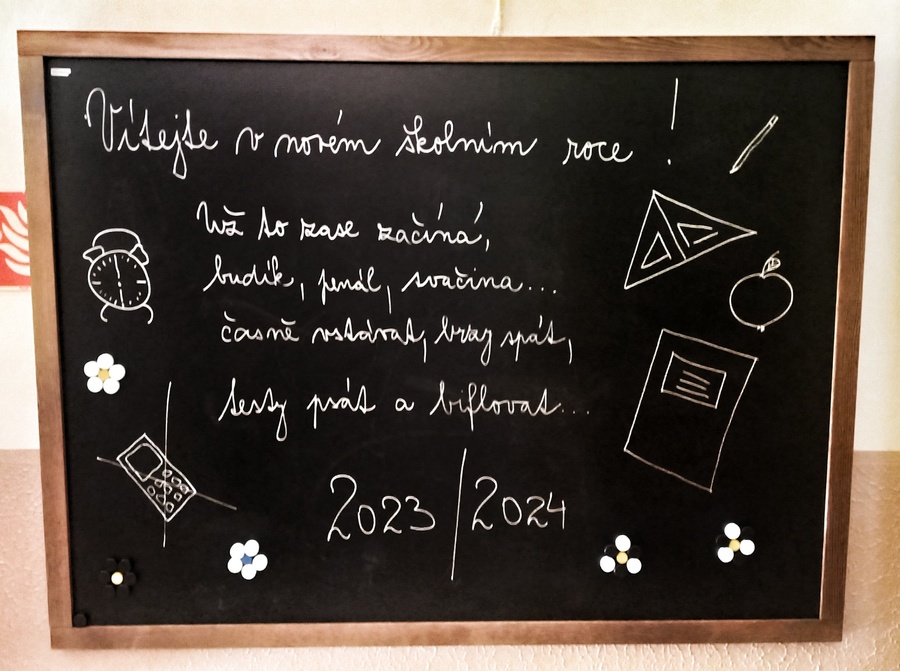 Vítejte v novém školním roce !
Už to zase začíná,
budík, penál, svačina...
časně vstávat, brzy spát,
testy psát a biflovat...
2023/2024